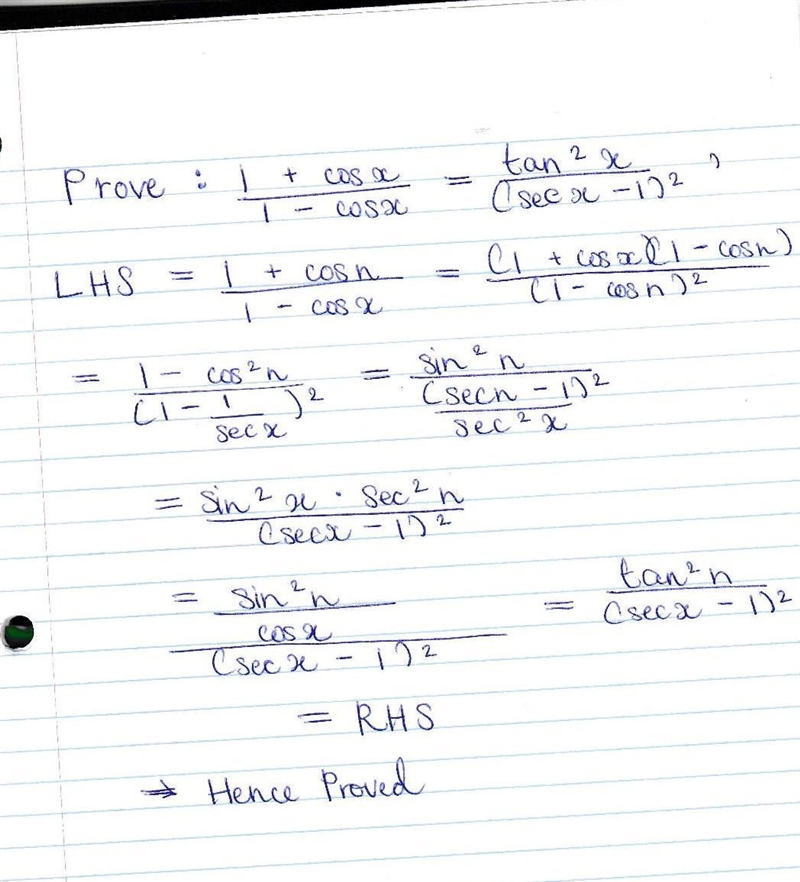 Prove : (1 + cosx)/(1 - cosx) = (tan²x)/(secx - 1)² ,
LHS = (1 + cosn)/(1 - cosx) = ((1 + cosx)(1 - cosn))/(1 - cosn)²
= (1 - cos²n)/(1 - 1/secx)² = (sin²n)/((secn - 1)²/sec²x)
= (sin²x · sec²n)/(secx - 1)²
= (sin²n/cosx)/(secx - 1)² = (tan²n)/(secx - 1)²
= RHS
→ Hence Proved